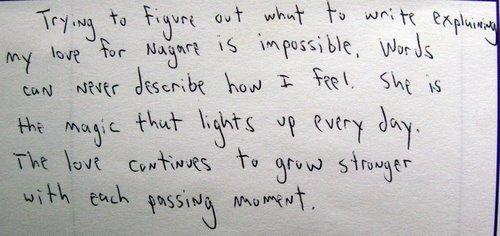 Trying to figure out what to write explaining
my love for Nagare is impossible. Words
can never describe how I feel. She is
the magic that lights up every day.
The love continues to grow stronger
with each passing moment.